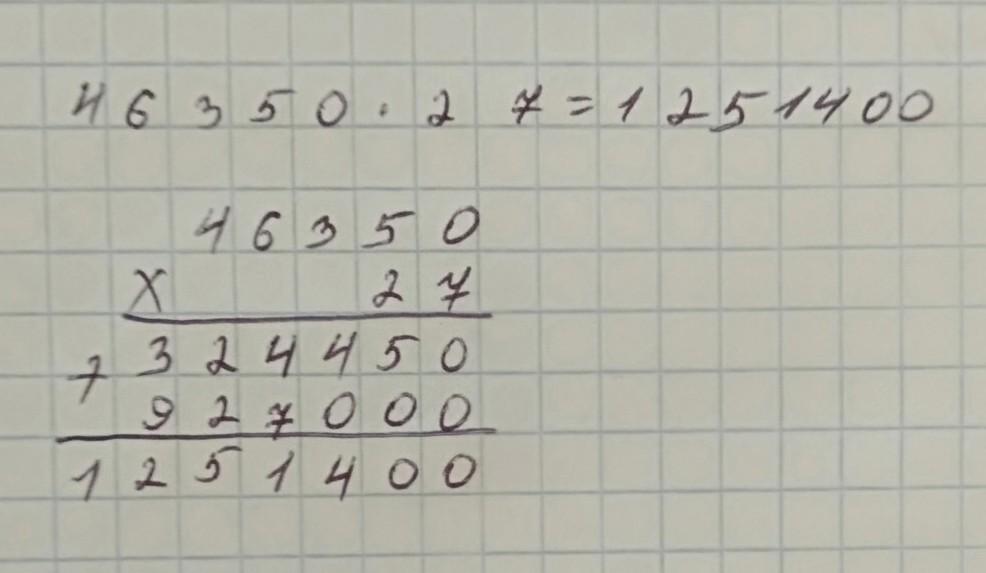 46350 · 27 = 1251400
46350
X 27
+ 324450
927000
1251400